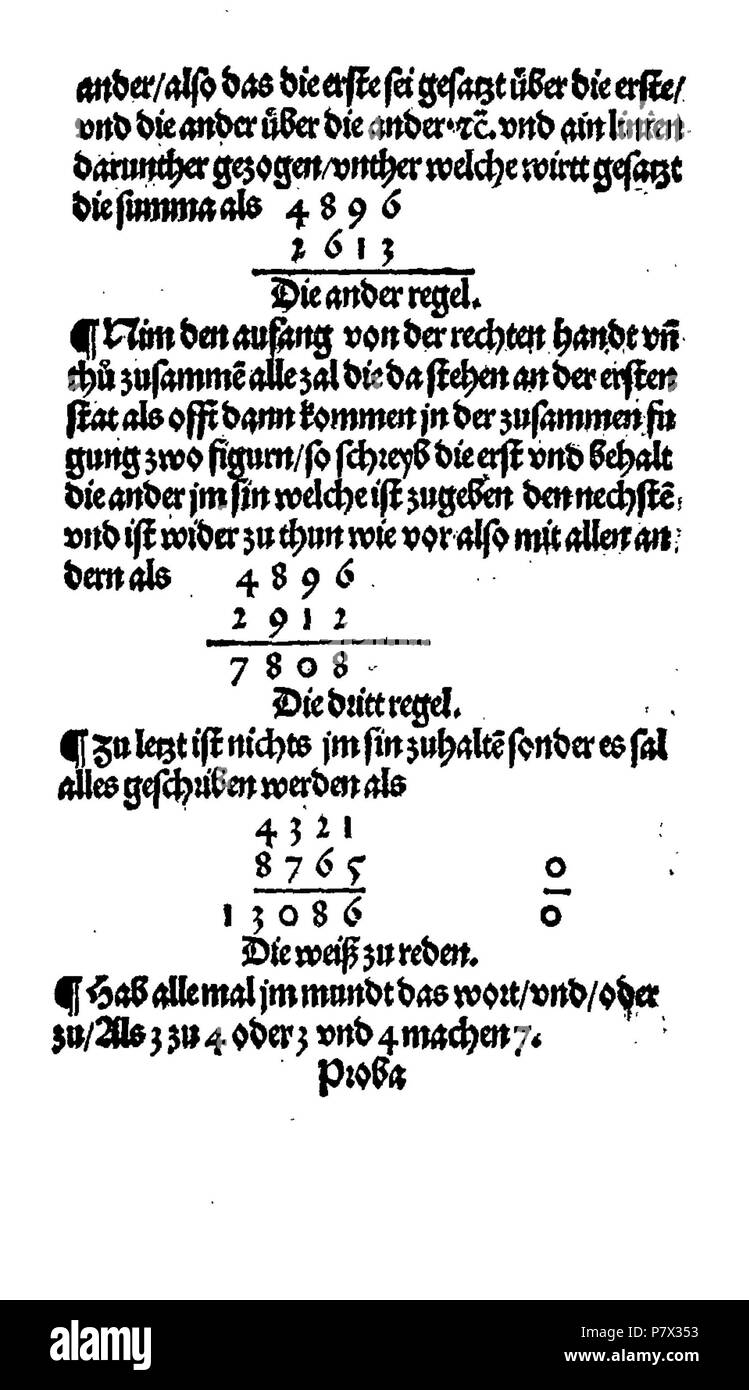 ander/also das die erste sei gesatzt über die erste/
vnd die ander über die ander ·ꝛc̃. vnd ain linien
darunther gezogen/vnther welche wirtt gesatzt
die summa als 4 8 9 6
2 6 1 3
Die ander regel.
¶ Nim den anfang von der rechten handt vñ
thů zusammẽ alle zal die da stehen an der ersten
stat als offt dann kommen jn der zusammen fu
gung zwo figurn/so schreyb die erst vnd behalt
die ander jm sin welche ist zugeben den nechstẽ
vnd ist wider zu thun wie vor also mit allen an
dern als 4 8 9 6
2 9 1 2
7 8 0 8
Die dritt regel.
¶ Zu letzt ist nichts jm sin zuhaltẽ sonder es sal
alles geschriben werden als
4 3 2 1
8 7 6 5 0
1 3 0 8 6 0
Die weiß zu reden.
¶ Hab allemal jm mundt das wort/vnd/oder
zu/Als 3 zu 4 oder 3 vnd 4 machen 7.
Proba
alamy
Image ID: P7X353
www.alamy.com